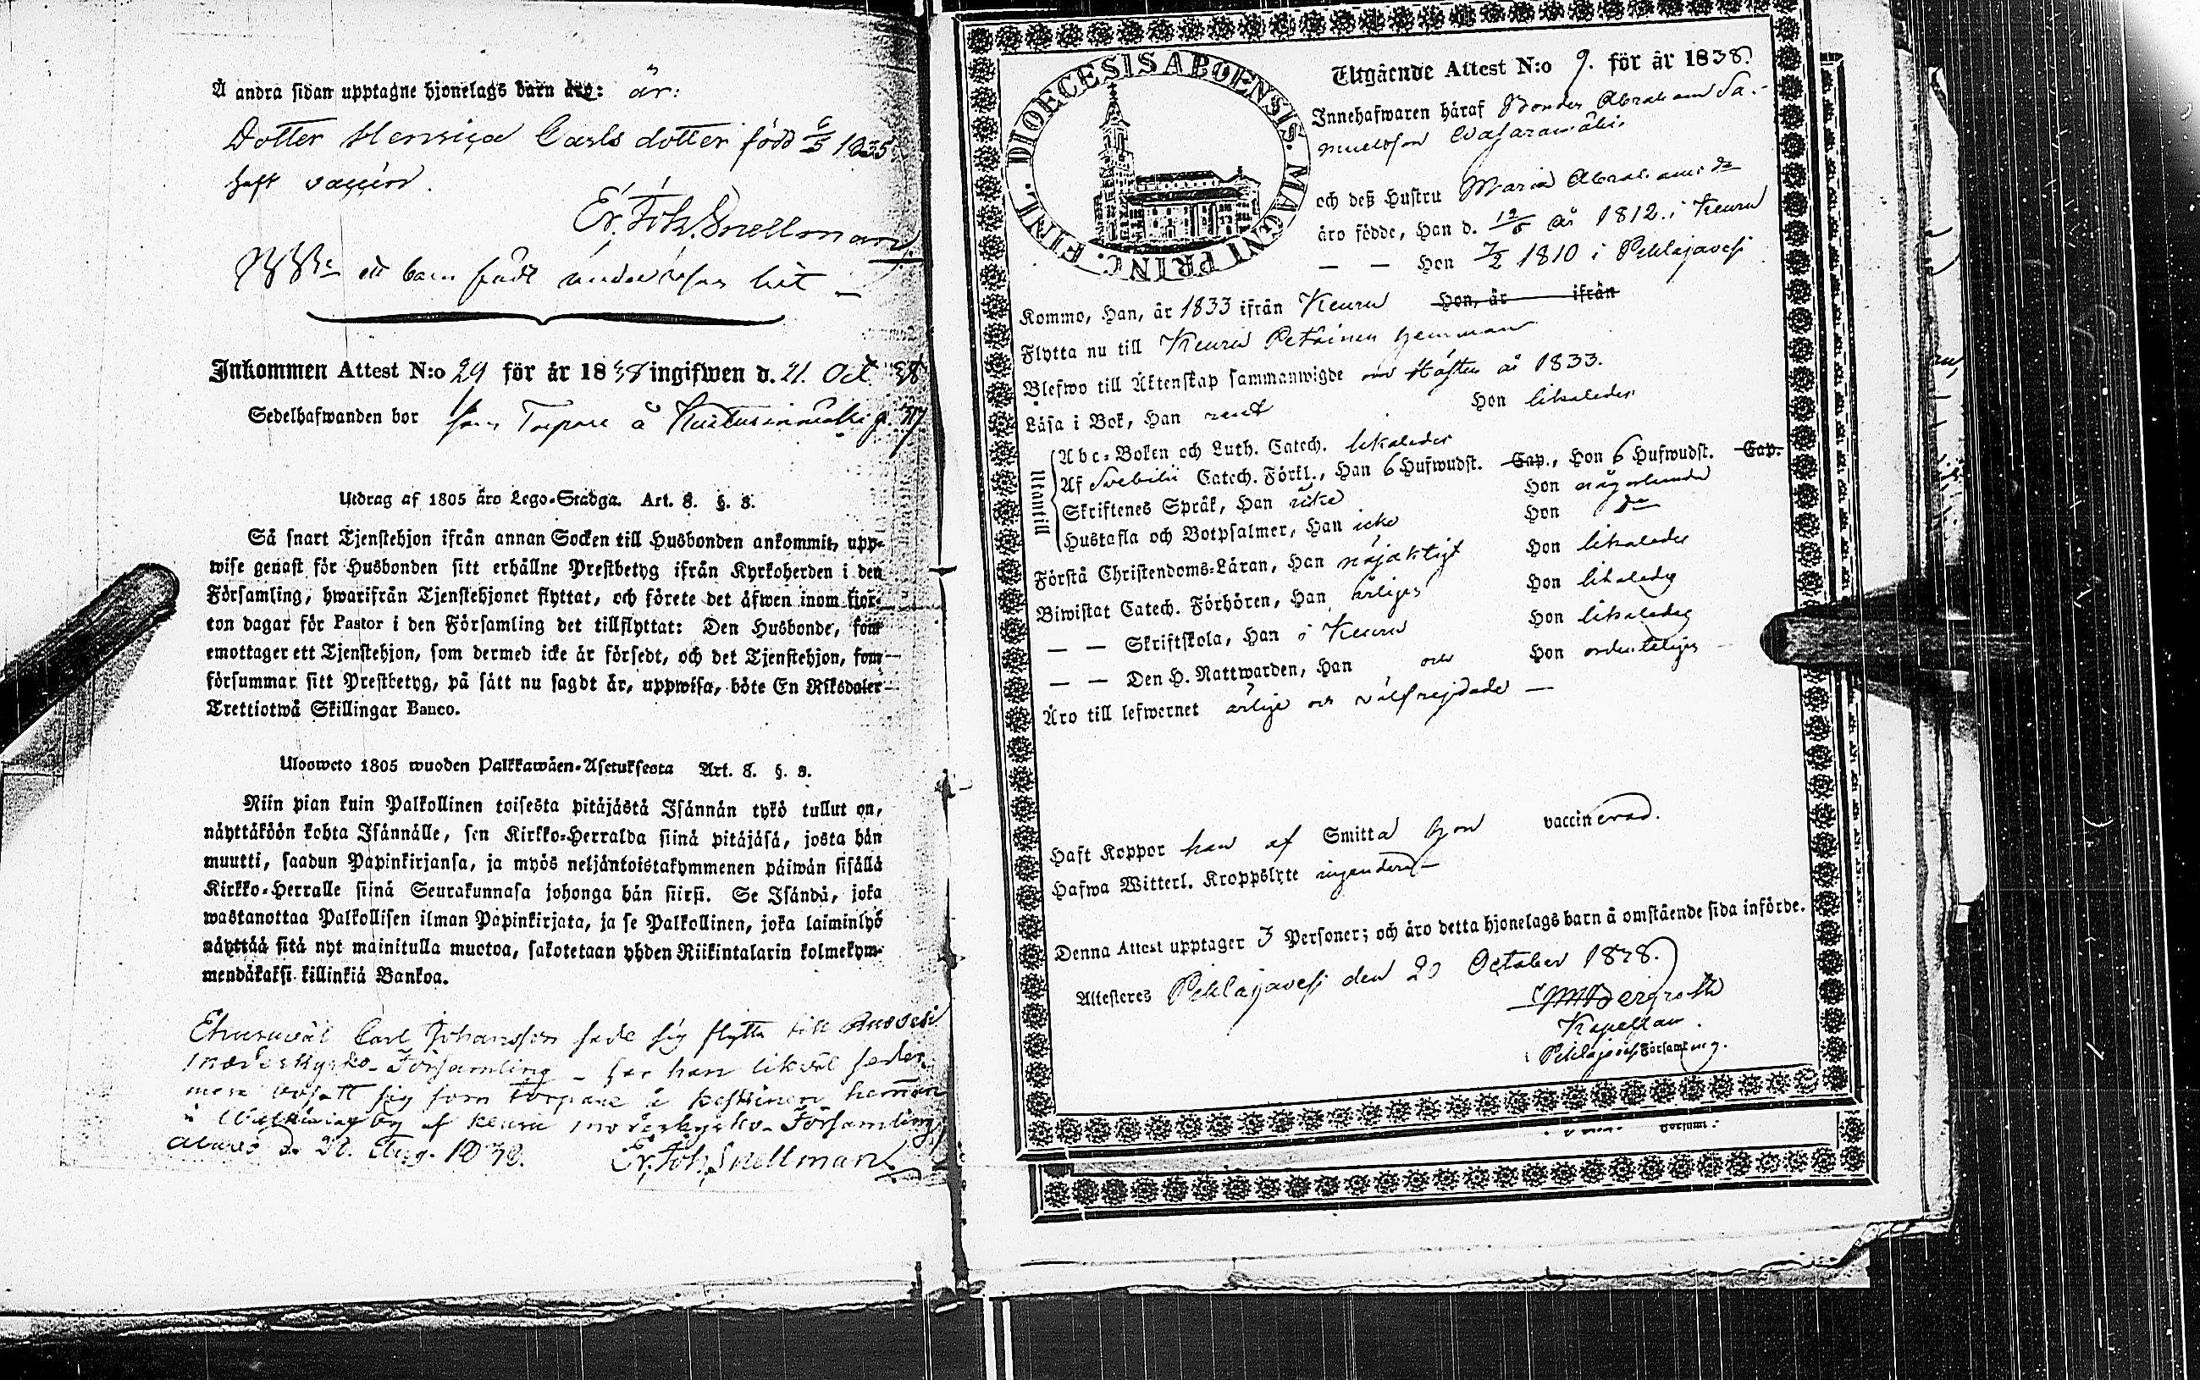 Å andra sidan upptagne hjonelags barn äro: är:
Dotter Henrica Carls dotter född 6/5 1835
haft vaccin.
Er. Joh. Snellman
ett barn födt
Inkommen Attest N:o 29 för år 1838 ingifwen d. 21. Oct. 38
Sedelhafwanden bor som Torpare å
Utdrag af 1805 åro Lego-Stadga. Art. 8. §. 8.
Så snart Tjenstehjon ifrån annan Socken till Husbonden ankommit, upp-
wise genast för Husbonden sitt erhållne Prestbetyg ifrån Kyrkoherden i den
Församling, hwarifrån Tjenstehjonet flyttat, och förete det äfwen inom fjor-
ton dagar för Pastor i den Församling det tillflyttat: Den Husbonde, som
emottager ett Tjenstehjon, som dermed icke är försedt, och det Tjenstehjon, som
försummar sitt Prestbetyg, på sätt nu sagdt är, uppwisa, böte En Riksdaler
Trettiotwå Skillingar Banco.
Ulosweto 1805 wuoden Palkkawäen-Asetuksesta Art. 8. §. 8.
Niin pian kuin Palkollinen toisesta pitäjästä Isännän tykö tullut on,
näyttäköön kohta Isännälle, sen Kirkko-Herralda siinä pitäjäsä, josta hän
muutti, saadun Papinkirjansa, ja myös neljäntoistakymmenen päiwän sisällä
Kirkko-Herralle siinä Seurakunnasa johonga hän siirsi. Se Isändä, joka
wastanottaa Palkollisen ilman Papinkirjata, ja se Palkollinen, joka laiminlyö
näyttää sitä nyt mainitulla muotoa, sakotetaan yhden Riikintalarin kolmekym-
mendäkaksi killinkiä Bankoa.
Ehuruväl Carl Johansson sade sig flytta till
moderkyrko-Församling – har han likväl seder-
mera bosatt sig som Torpare å hemman
i by af Keuru moderkyrko-Församling
d. 28. Aug. 1838. Er. Joh. Snellman
DIOECESIS ABOENSIS. MAGNI PRINC. FINL.
Utgående Attest N:o 9. för år 1838.
Innehafwaren häraf Bonden Abraham Sa-
muelsson Wasaramäki
och deß Hustru Maria Abrahamsdr
äro födde, Han d. 12/6 år 1812. i Keuru
— — Hon 7/2 1810 i Pihlajavesi
Kommo, Han, år 1833 ifrån Keuru Hon, år ifrån
Flytta nu till Keuru hemman
Blefwo till Äktenskap sammanwigde om Hösten år 1833.
Läsa i Bok, Han rent Hon likaledes
Utantill
Abc-Boken och Luth. Catech. likaledes
Af Svebilii Catech. Förkl., Han 6 Hufwudst. Cap., Hon 6 Hufwudst. Cap.
Skriftenes Språk, Han icke Hon någorlunda
Hustafla och Botpsalmer, Han icke Hon do
Förstå Christendoms-Läran, Han nöjaktigt Hon likaledes
Biwistat Catech. Förhören, Han årligen Hon likaledes
— — Skriftskola, Han i Keuru Hon likaledes
— — Den H. Nattwarden, Han och Hon ordenteligen
Äro till lefwernet ärlige och välfrejdade —
Haft Koppor han af Smitta hon vaccinerad.
Hafwa Witterl. Kroppslyte ingendera —
Denna Attest upptager 3 Personer; och äro detta hjonelags barn å omstående sida införde.
Attesteres Pihlajavesi den 20 October 1838.
Bergroth
Kapellan.
i Pihlajavesi Församling.